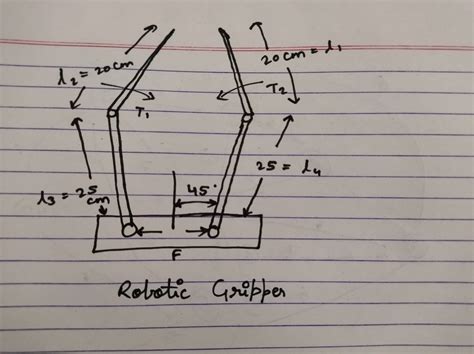 l₂ = 20cm
20cm = l₁
T₁
T₂
l₃ = 25
cm
45°
25 = l₄
F
Robotic Gripper